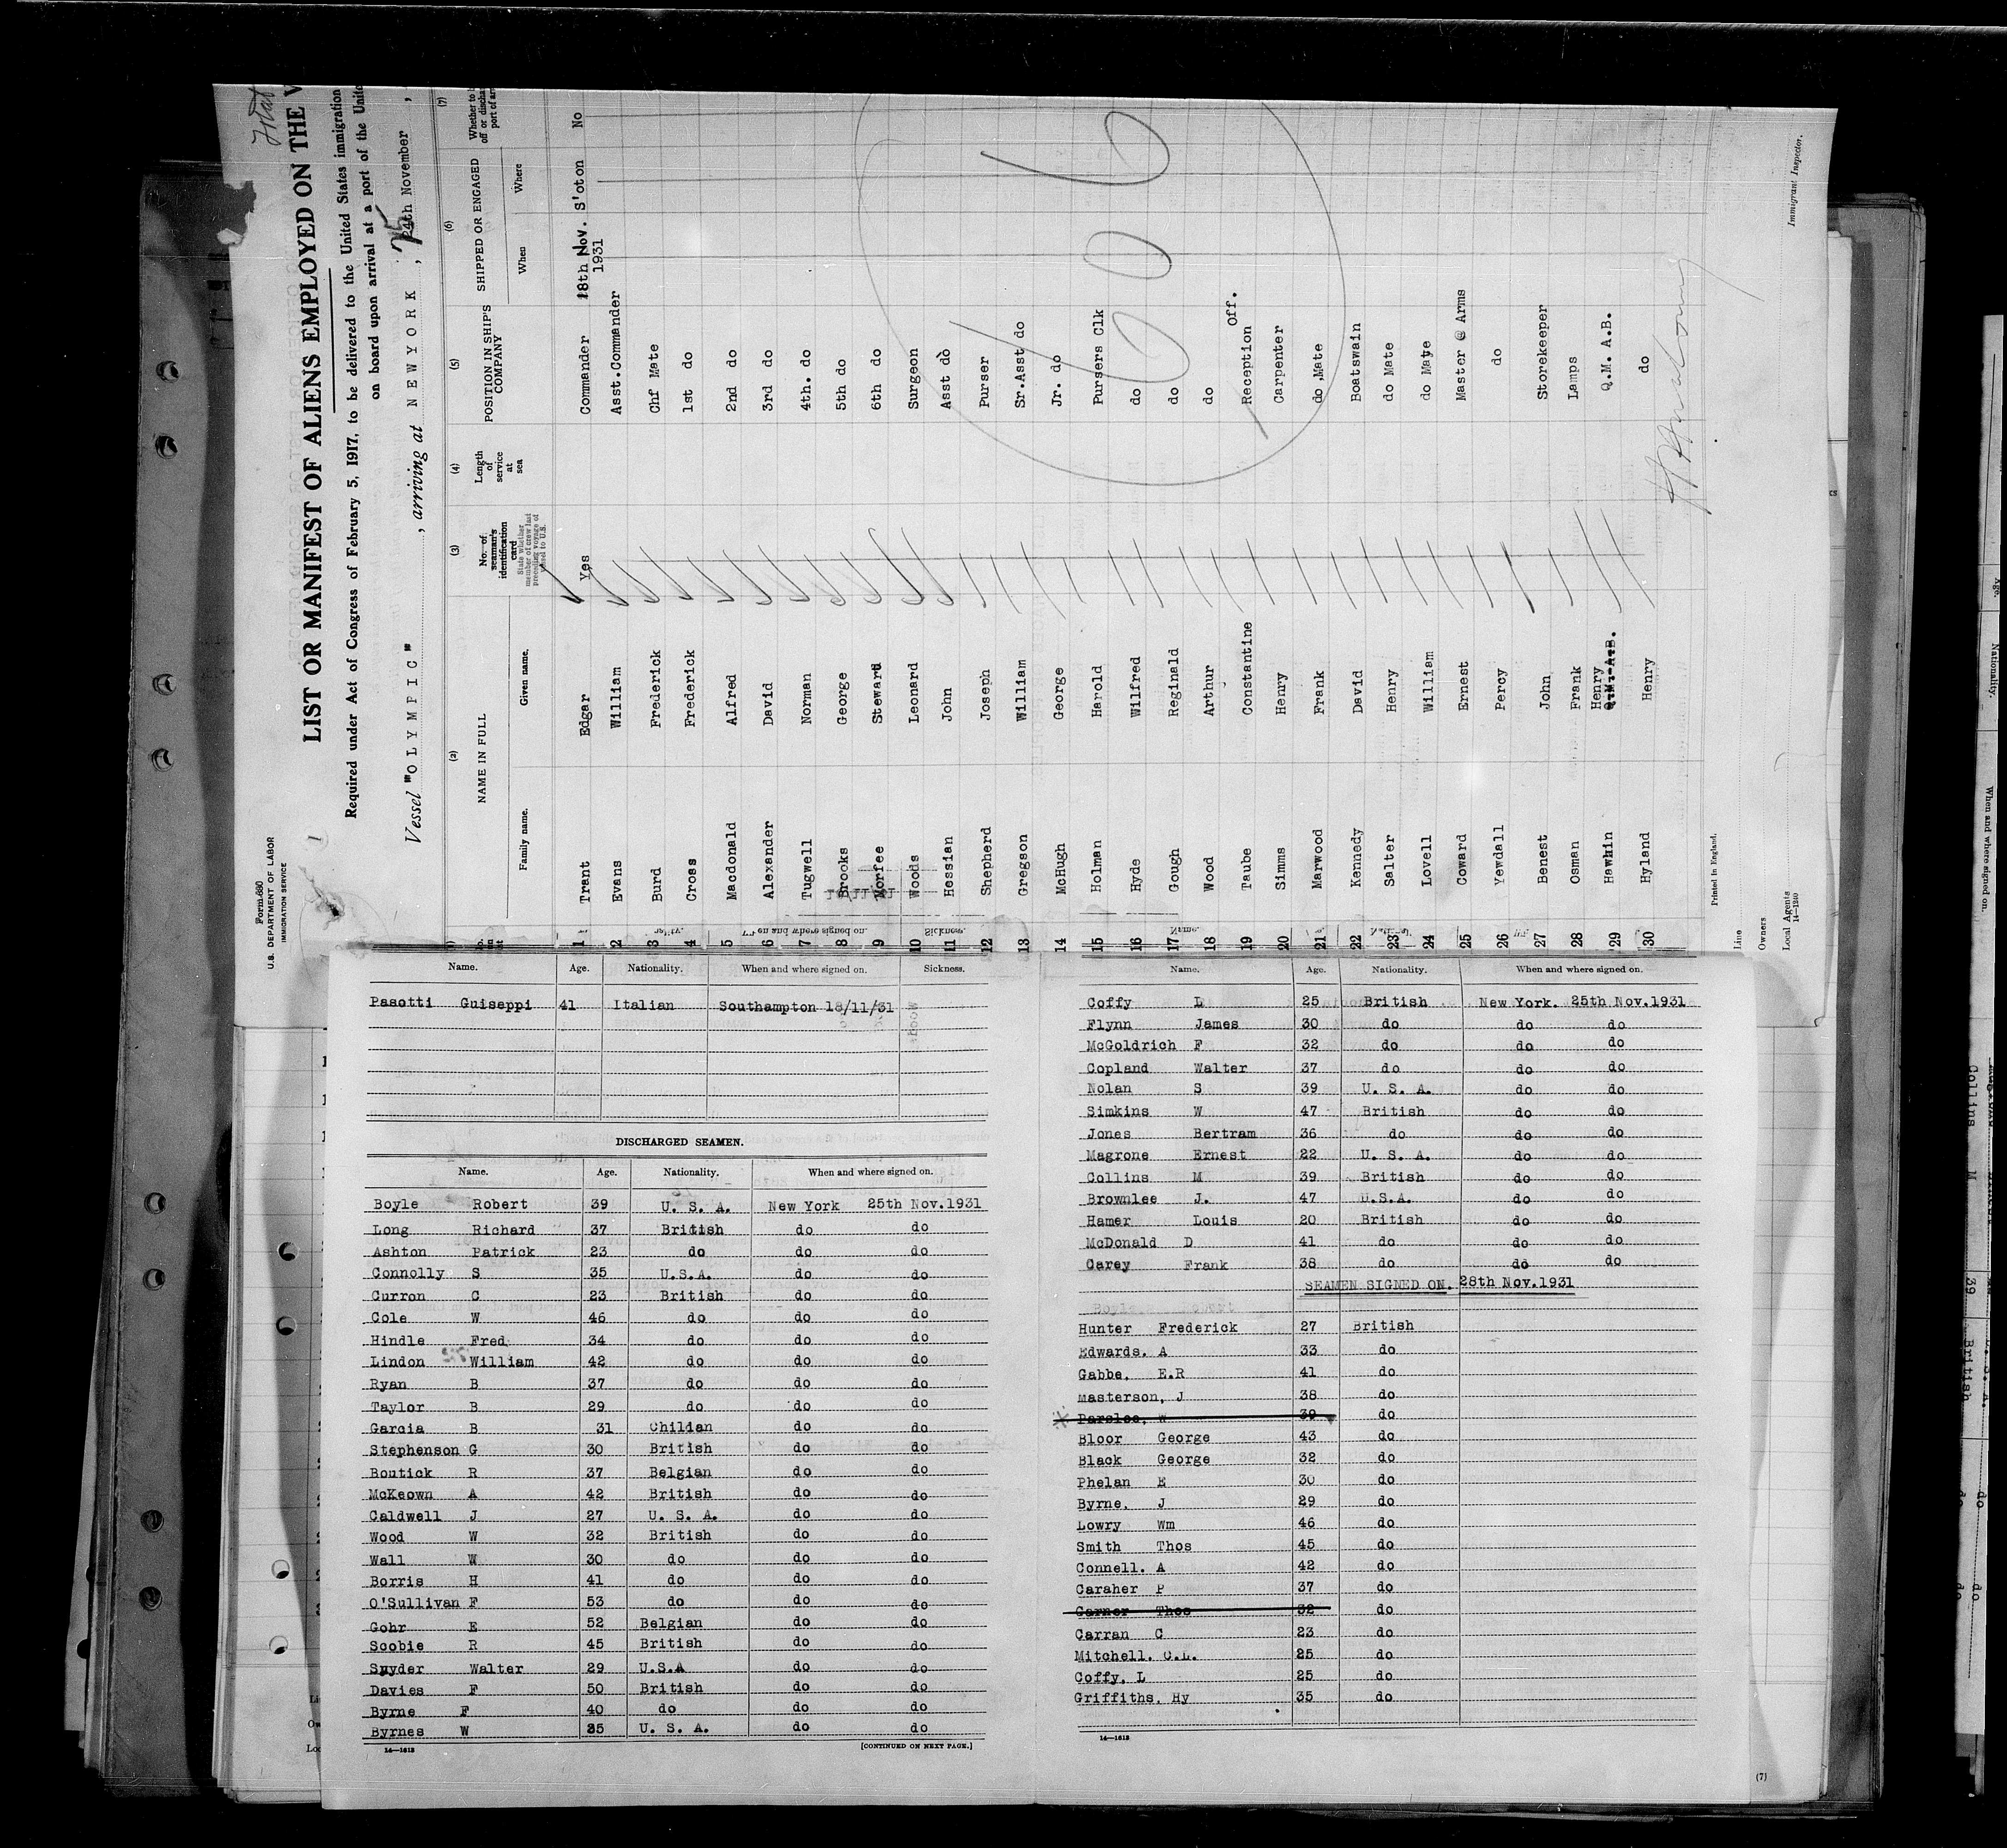 Form 680
U.S. DEPARTMENT OF LABOR
IMMIGRATION SERVICE
LIST OR MANIFEST OF ALIENS EMPLOYED ON THE
Required under Act of Congress of February 5, 1917, to be delivered to the United States immigration
on board upon arrival at a port of the
Vessel "OLYMPIC", arriving at NEWYORK, 25 24th November,
(2) (3) (4) (5) (6) (7)
NAME IN FULL
Family name. Given name.
No. of seaman's identification card
State whether member of crew last preceding voyage of vessel to U.S.
Length of service at sea
POSITION IN SHIP'S COMPANY
SHIPPED OR ENGAGED
When Where
1 Trant Edgar Yes Commander 18th Nov. 1931 S'oton No
2 Evans William Asst.Commander
3 Burd Frederick Chf Mate
4 Cross Frederick 1st do
5 Macdonald Alfred 2nd do
6 Alexander David 3rd do
7 Tugwell Norman 4th. do
8 Brooks George 5th do
9 Morfee Steward 6th do
10 Woods Leonard Surgeon
11 Hessian John Asst do
12 Shepherd Joseph Purser
13 Gregson William Sr.Asst do
14 McHugh George Jr. do
15 Holman Harold Pursers Clk
16 Hyde Wilfred do
17 Gough Reginald do
18 Wood Arthur do
19 Taube Constantine Reception Off.
20 Simms Henry Carpenter
21 Marwood Frank do ,Mate
22 Kennedy David Boatswain
23 Salter Henry do Mate
24 Lovell William do Mate
25 Coward Ernest Master @ Arms
26 Yewdall Percy do
27 Benest John Storekeeper
28 Osman Frank Lamps
29 Hawkin Henry Q.M. A.B. Q.M. A.B.
30 Hyland Henry do
606
Printed in England.
Line
Owners
Local Agents
14—1240
Immigrant Inspector.
Name. Age. Nationality. When and where signed on. Sickness.
Pasotti Guiseppi 41 Italian Southampton 18/11/31
DISCHARGED SEAMEN.
Name. Age. Nationality. When and where signed on.
Boyle Robert 39 U. S. A. New York 25th Nov.1931
Long Richard 37 British do do
Ashton Patrick 23 do do do
Connolly S 35 U.S.A. do do
Curron C 23 British do do
Cole W 46 do do do
Hindle Fred 34 do do do
Lindon William 42 do do do
Ryan B 37 do do do
Taylor B 29 do do do
Garcia B 31 Chilian do do
Stephenson G 30 British do do
Boutick R 37 Belgian do do
McKeown A 42 British do do
Caldwell J 27 U. S. A. do do
Wood W 32 British do do
Wall W 30 do do do
Borris H 41 do do do
O'Sullivan F 53 do do do
Gohr E 52 Belgian do do
Scobie R 45 British do do
Snyder Walter 29 U.S.A do do
Davies F 50 British do do
Byrne F 40 do do do
Byrnes W 35 U. S. A. do do
14—1613 [CONTINUED ON NEXT PAGE.]
Name. Age. Nationality. When and where signed on.
Coffy L 25 British New York. 25th Nov.1931
Flynn James 30 do do do
McGoldrich F 32 do do do
Copland Walter 37 do do do
Nolan S 39 U. S. A. do do
Simkins W 47 British do do
Jones Bertram 36 do do do
Magrone Ernest 22 U. S. A. do do
Collins M 39 British do do
Brownlee J. 47 U.S.A. do do
Hamer Louis 20 British do do
McDonald D 41 do do do
Carey Frank 38 do do do
SEAMEN SIGNED ON. 28th Nov.1931
Hunter Frederick 27 British
Edwards. A 33 do
Gabbe. E.R 41 do
Masterson, J 38 do
Parsloe, W 39 do
Bloor George 43 do
Black George 32 do
Phelan E 30 do
Byrne. J 29 do
Lowry Wm 46 do
Smith Thos 45 do
Connell. A 42 do
Caraher P 37 do
Garner Thos 32 do
Carran C 23 do
Mitchell. C.L. 25 do
Coffy. L 25 do
Griffiths. Hy 35 do
14—1613
(7)